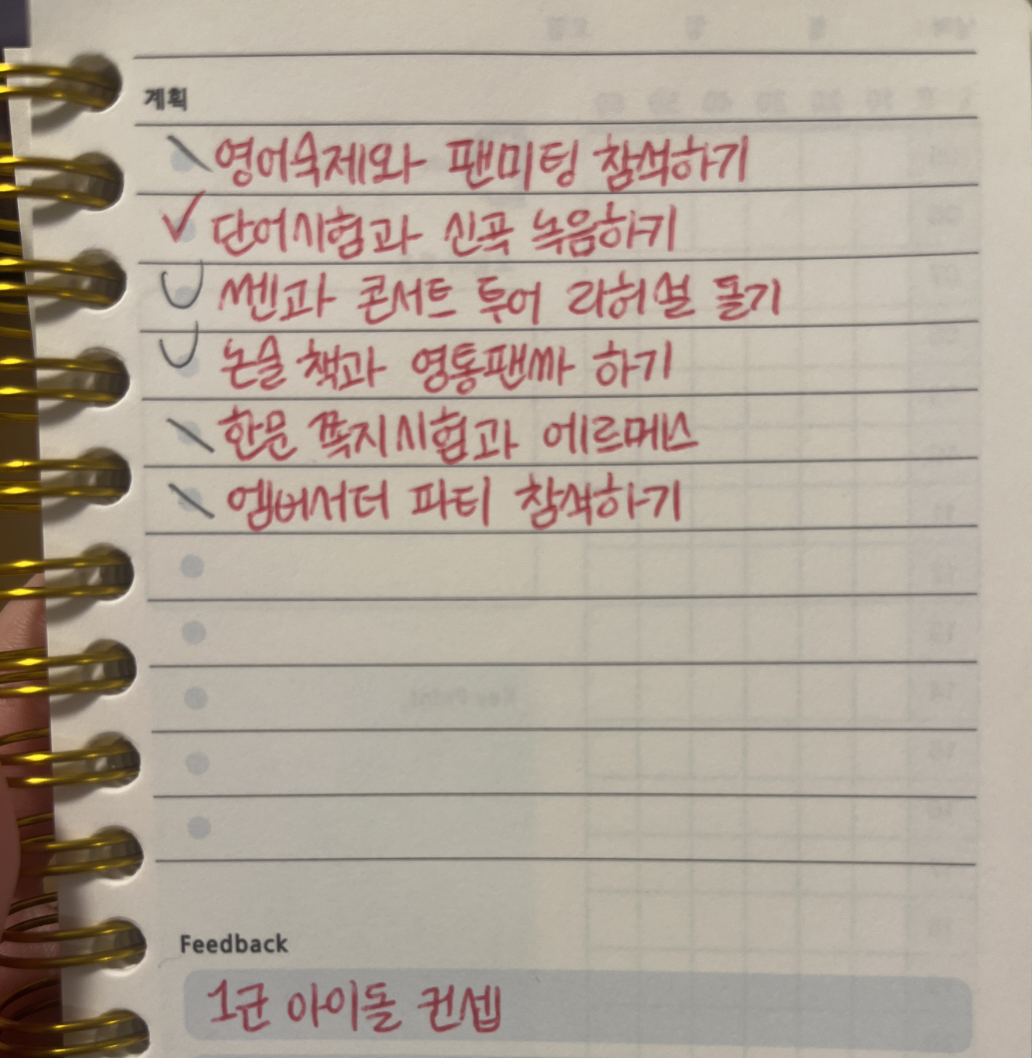 계획
영어숙제와 팬미팅 참석하기
단어시험과 신곡 녹음하기
쎈과 콘서트 투어 리허설 돌기
논술 책과 영통팬싸 하기
한문 쪽지시험과 에르메스
엠버서더 파티 참석하기
Feedback
1군 아이돌 컨셉